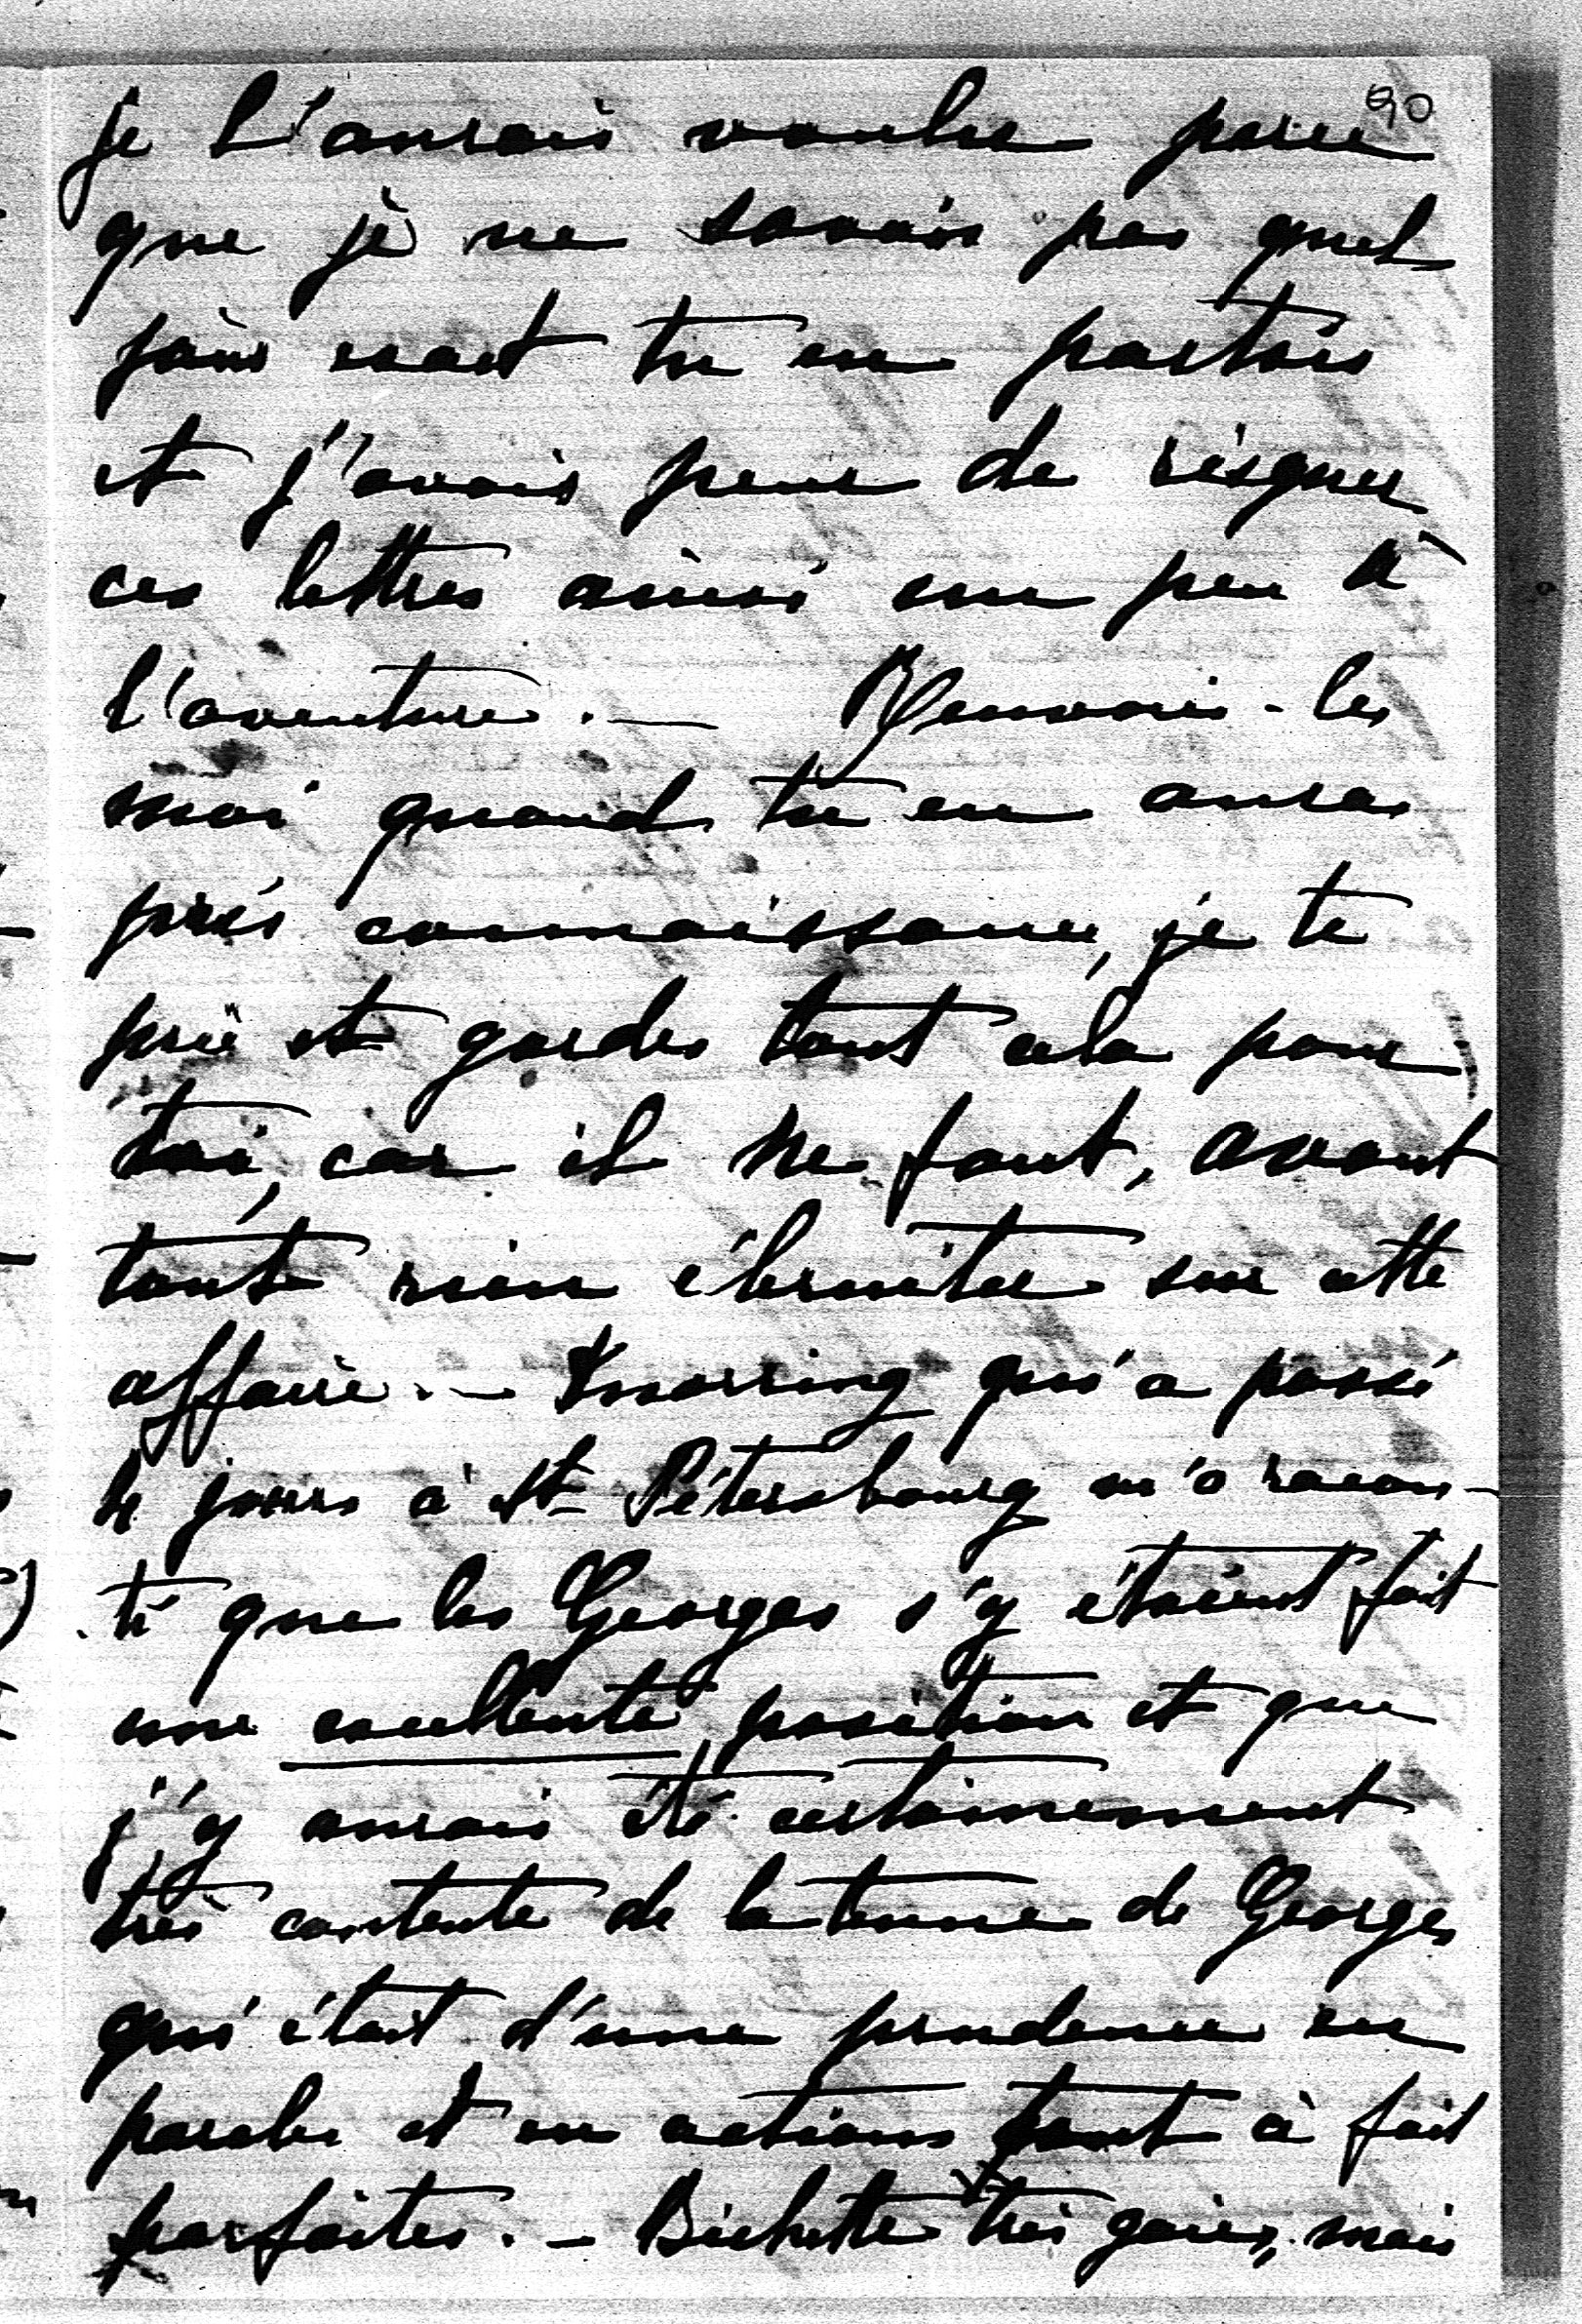 90
je l'aurais voulu parce
que je ne savais pas quel
jour exact tu en partais
et j'avais peur de risquer
ces lettres ainsi un peu à
l'aventure. — Renvoie-les
moi quand tu en auras
pris connaissance, je te
prie et gardes tout cela pour
toi, car il ne faut, avant
tout rien ébruiter sur cette
affaire. — Knorring qui a passé
4 jours à St Pétersbourg m'a racon-
té que les Georges s'y étaient fait
une excellente position et que
j'y aurais été certainement
très contente de la tenue de Georges
qui était d'une prudence en
paroles et en actions tout à fait
parfaites. — Bichette très gaie, mais